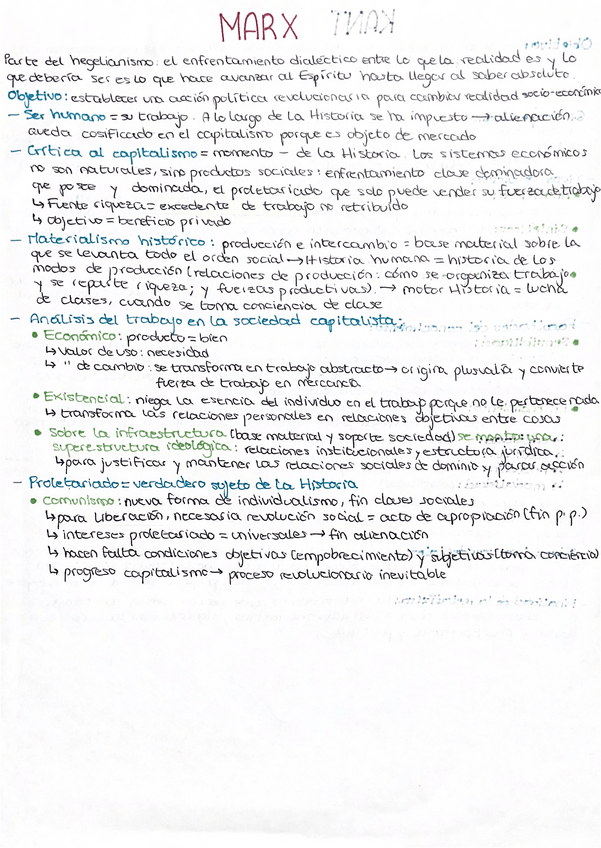 MARX
KANT
Parte del hegelianismo: el enfrentamiento dialéctico entre lo que la realidad es y lo
que debería ser es lo que hace avanzar al Espíritu hasta llegar al saber absoluto.
Objetivo: establecer una acción política revolucionaria para cambiar realidad socio-económic
- Ser humano = su trabajo. A lo largo de la Historia se ha impuesto → alienación.
queda cosificado en el capitalismo porque es objeto de mercado
- Crítica al capitalismo = momento - de la Historia. Los sistemas económicos
no son naturales, sino productos sociales: enfrentamiento clase dominadora
que posee y dominada, el proletariado que solo puede vender su fuerza de trabajo
↳ Fuente riqueza = excedente de trabajo no retribuido
↳ objetivo = beneficio privado
- Materialismo histórico: producción e intercambio = base material sobre la
que se levanta todo el orden social → Historia humana = historia de los
modos de producción (relaciones de producción: cómo se organiza trabajo
y se reparte riqueza; y fuerzas productivas). → motor Historia = lucha
de clases, cuando se toma conciencia de clase
- Análisis del trabajo en la sociedad capitalista:
• Económico: producto = bien
↳ valor de uso: necesidad
↳ " de cambio: se transforma en trabajo abstracto → origina plusvalía y convierte
fuerza de trabajo en mercancía
• Existencial: niega la esencia del individuo en el trabajo porque no le pertenece nada
↳ transforma las relaciones personales en relaciones objetivas entre cosas
• Sobre la infraestructura (base material y soporte sociedad) se monta una
superestructura ideológica: relaciones institucionales y estructura jurídica.
↳ para justificar y mantener las relaciones sociales de dominio y parar acción
- Proletariado = verdadero sujeto de la Historia
• Comunismo: nueva forma de individualismo, fin clases sociales
↳ para liberación, necesaria revolución social = acto de apropiación (fin p.p.)
↳ intereses proletariado = universales → fin alienación
↳ hacen falta condiciones objetivas (empobrecimiento) y subjetivas (toma conciencia)
↳ progreso capitalismo → proceso revolucionario inevitable